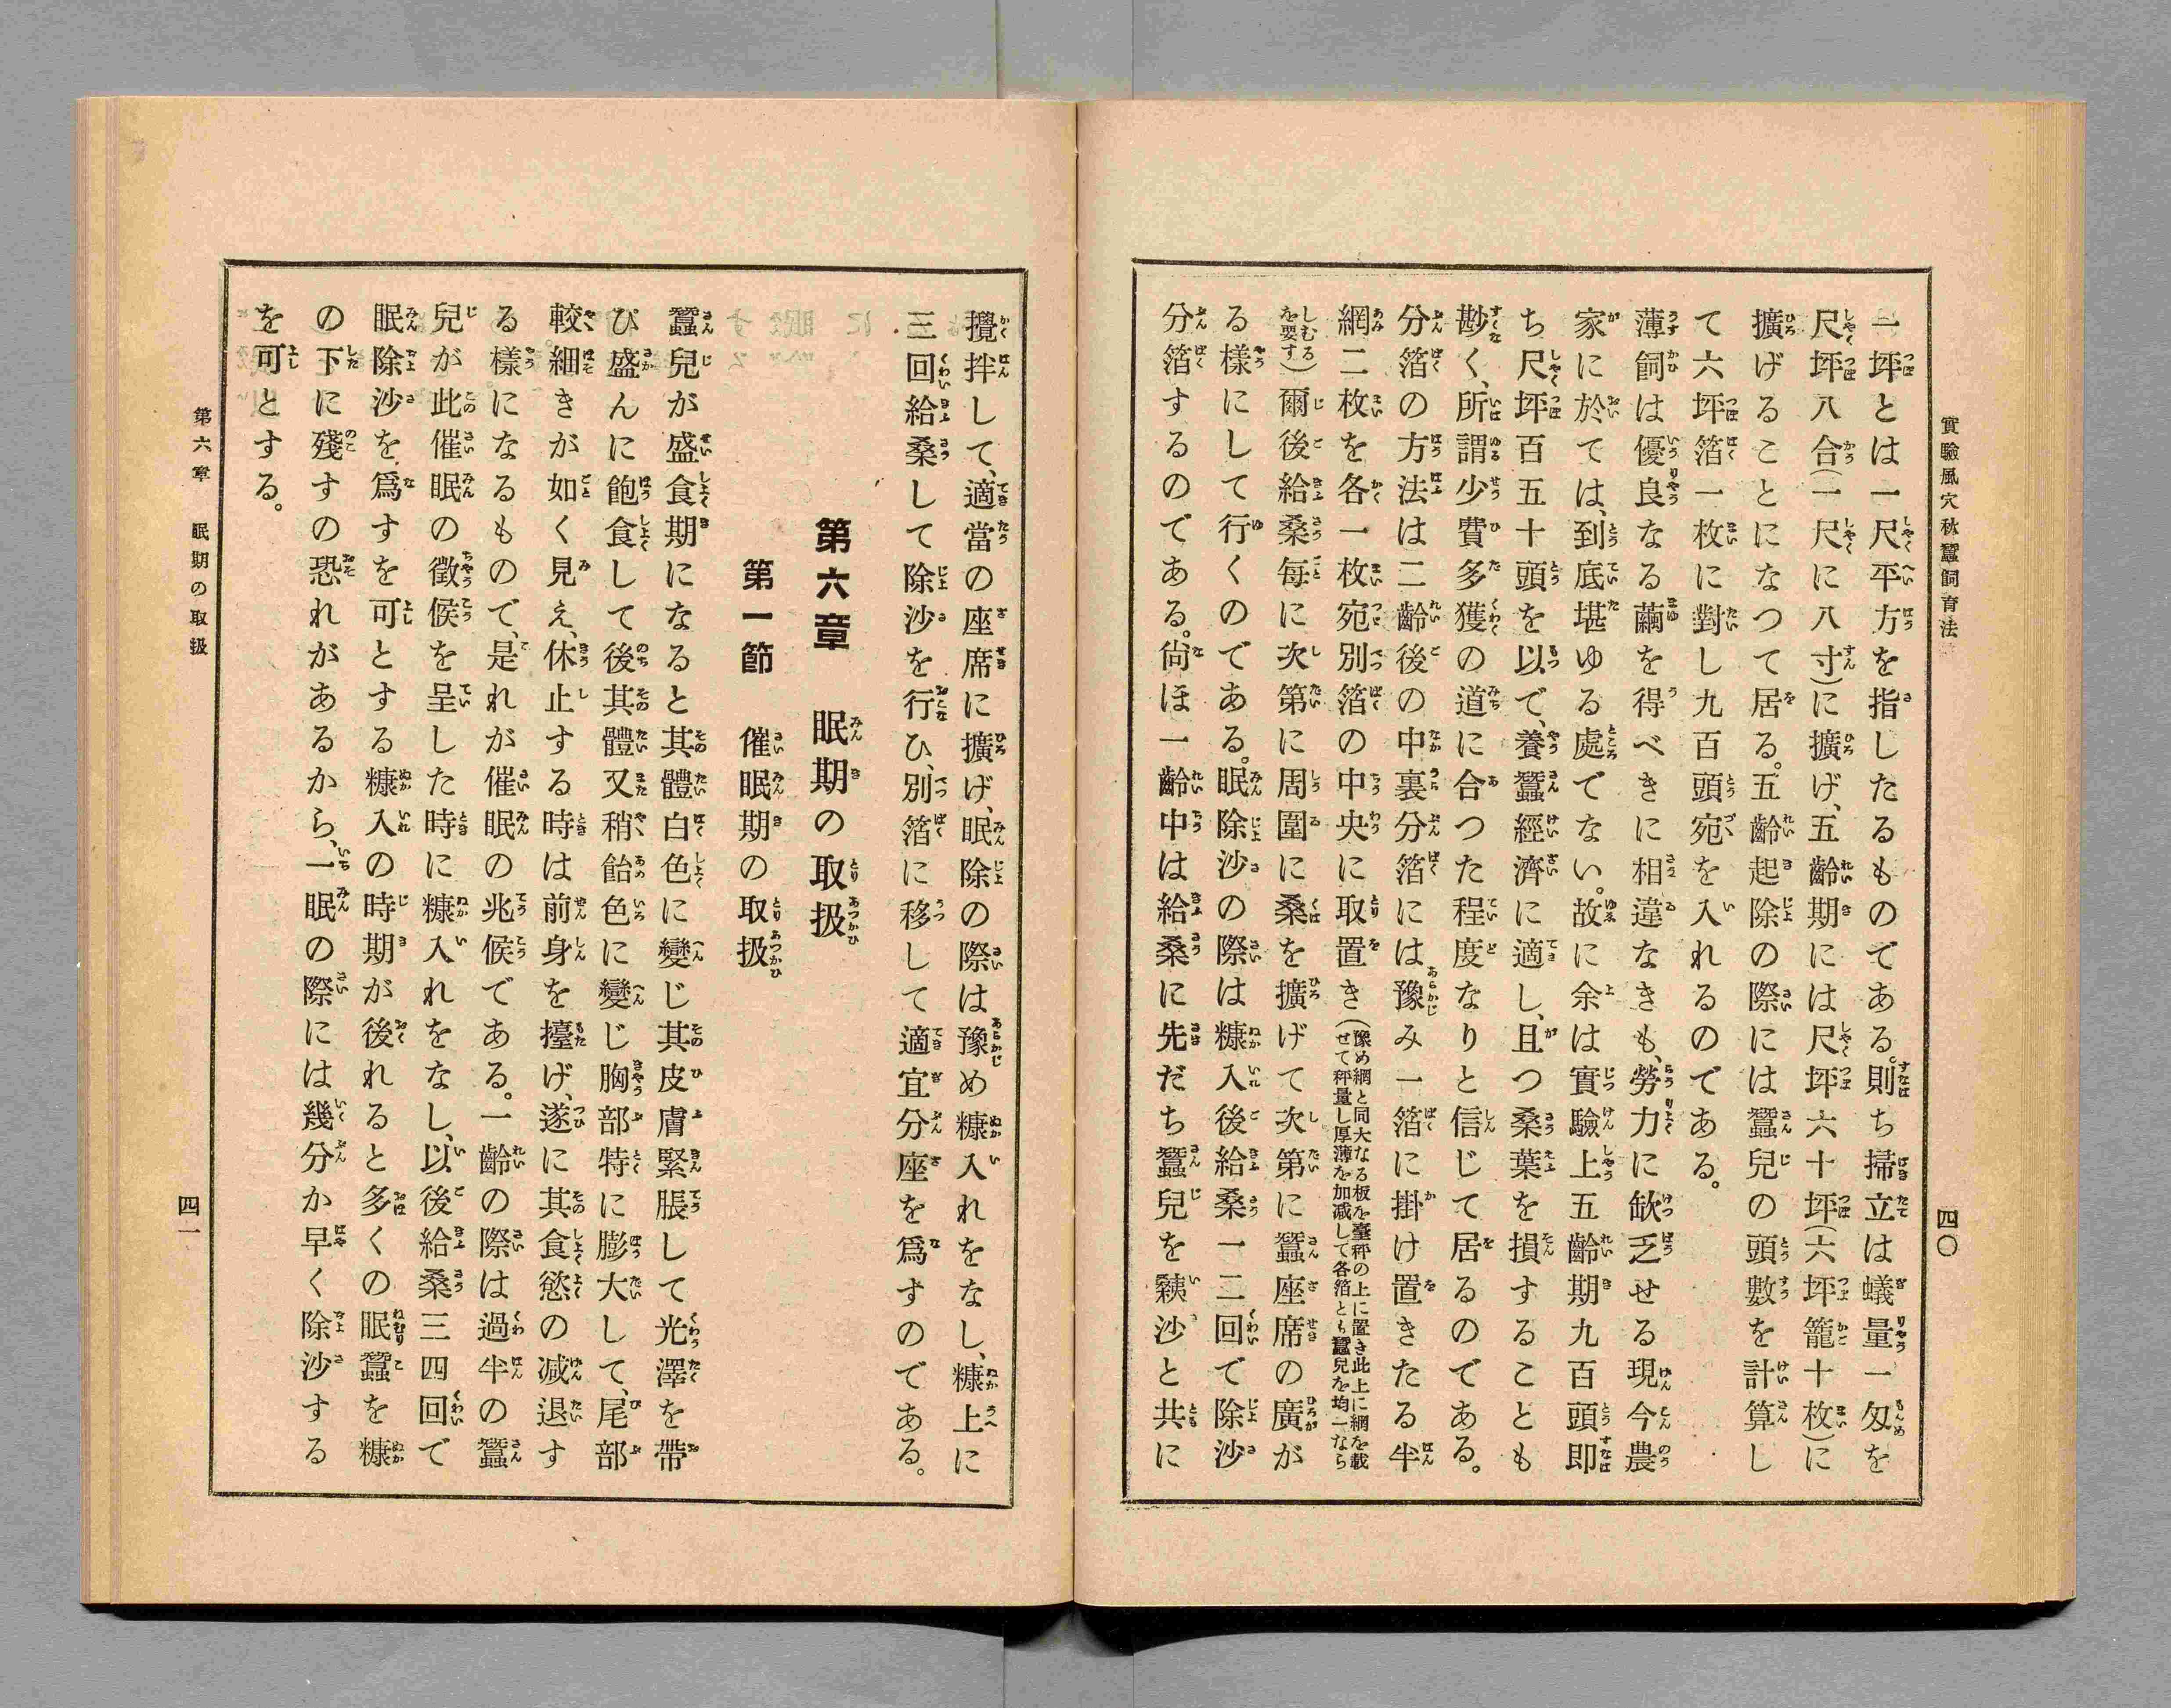 實驗風穴秋蠶飼育法
四〇
一坪とは一尺平方を指したるものである。則ち掃立は蟻量一匁を
尺坪八合(一尺に八寸)に擴げ、五齡期には尺坪六十坪(六坪籠十枚)に
擴げることになつて居る。五齡起除の際には蠶兒の頭數を計算し
て六坪箔一枚に對し九百頭宛を入れるのである。
薄飼は優良なる繭を得べきに相違なきも、勞力に缺乏せる現今農
家に於ては、到底堪ゆる處でない。故に余は實驗上五齡期九百頭即
ち尺坪百五十頭を以て、養蠶經濟に適し、且つ桑葉を損することも
尠く、所謂少費多獲の道に合つた程度なりと信じて居るのである。
分箔の方法は二齡後の中裏分箔には豫み一箔に掛け置きたる半
網二枚を各一枚宛別箔の中央に取置き(豫め網と同大なる板を臺秤の上に置き此上に網を載せて秤量し厚薄を加減して各箔とも蠶兒を均一なら
しむるを要す)爾後給桑每に次第に周圍に桑を擴げて次第に蠶座席の廣が
る樣にして行くのである。眠除沙の際は糠入後給桑一二回で除沙
分箔するのである。尙ほ一齡中は給桑に先だち蠶兒を䅏沙と共に
攪拌して、適當の座席に擴げ、眠除の際は豫め糠入れをなし、糠上に
三回給桑して除沙を行ひ、別箔に移して適宜分座を爲すのである。
第六章 眠期の取扱
第一節 催眠期の取扱
蠶兒が盛食期になると其體白色に變じ其皮膚緊脹して光澤を帶
び盛んに飽食して後其體又稍飴色に變じ胸部特に膨大して、尾部
較細きが如く見え、休止する時は前身を擡げ、遂に其食慾の减退す
る樣になるもので、是れが催眠の兆候である。一齡の際は過半の蠶
兒が此催眠の徵候を呈した時に糠入れをなし、以後給桑三四回で
眠除沙を爲すを可とする糠入の時期が後れると多くの眠蠶を糠
の下に殘すの恐れがあるから、一眠の際には幾分か早く除沙する
を可とする。
第六章 眠期の取扱
四一